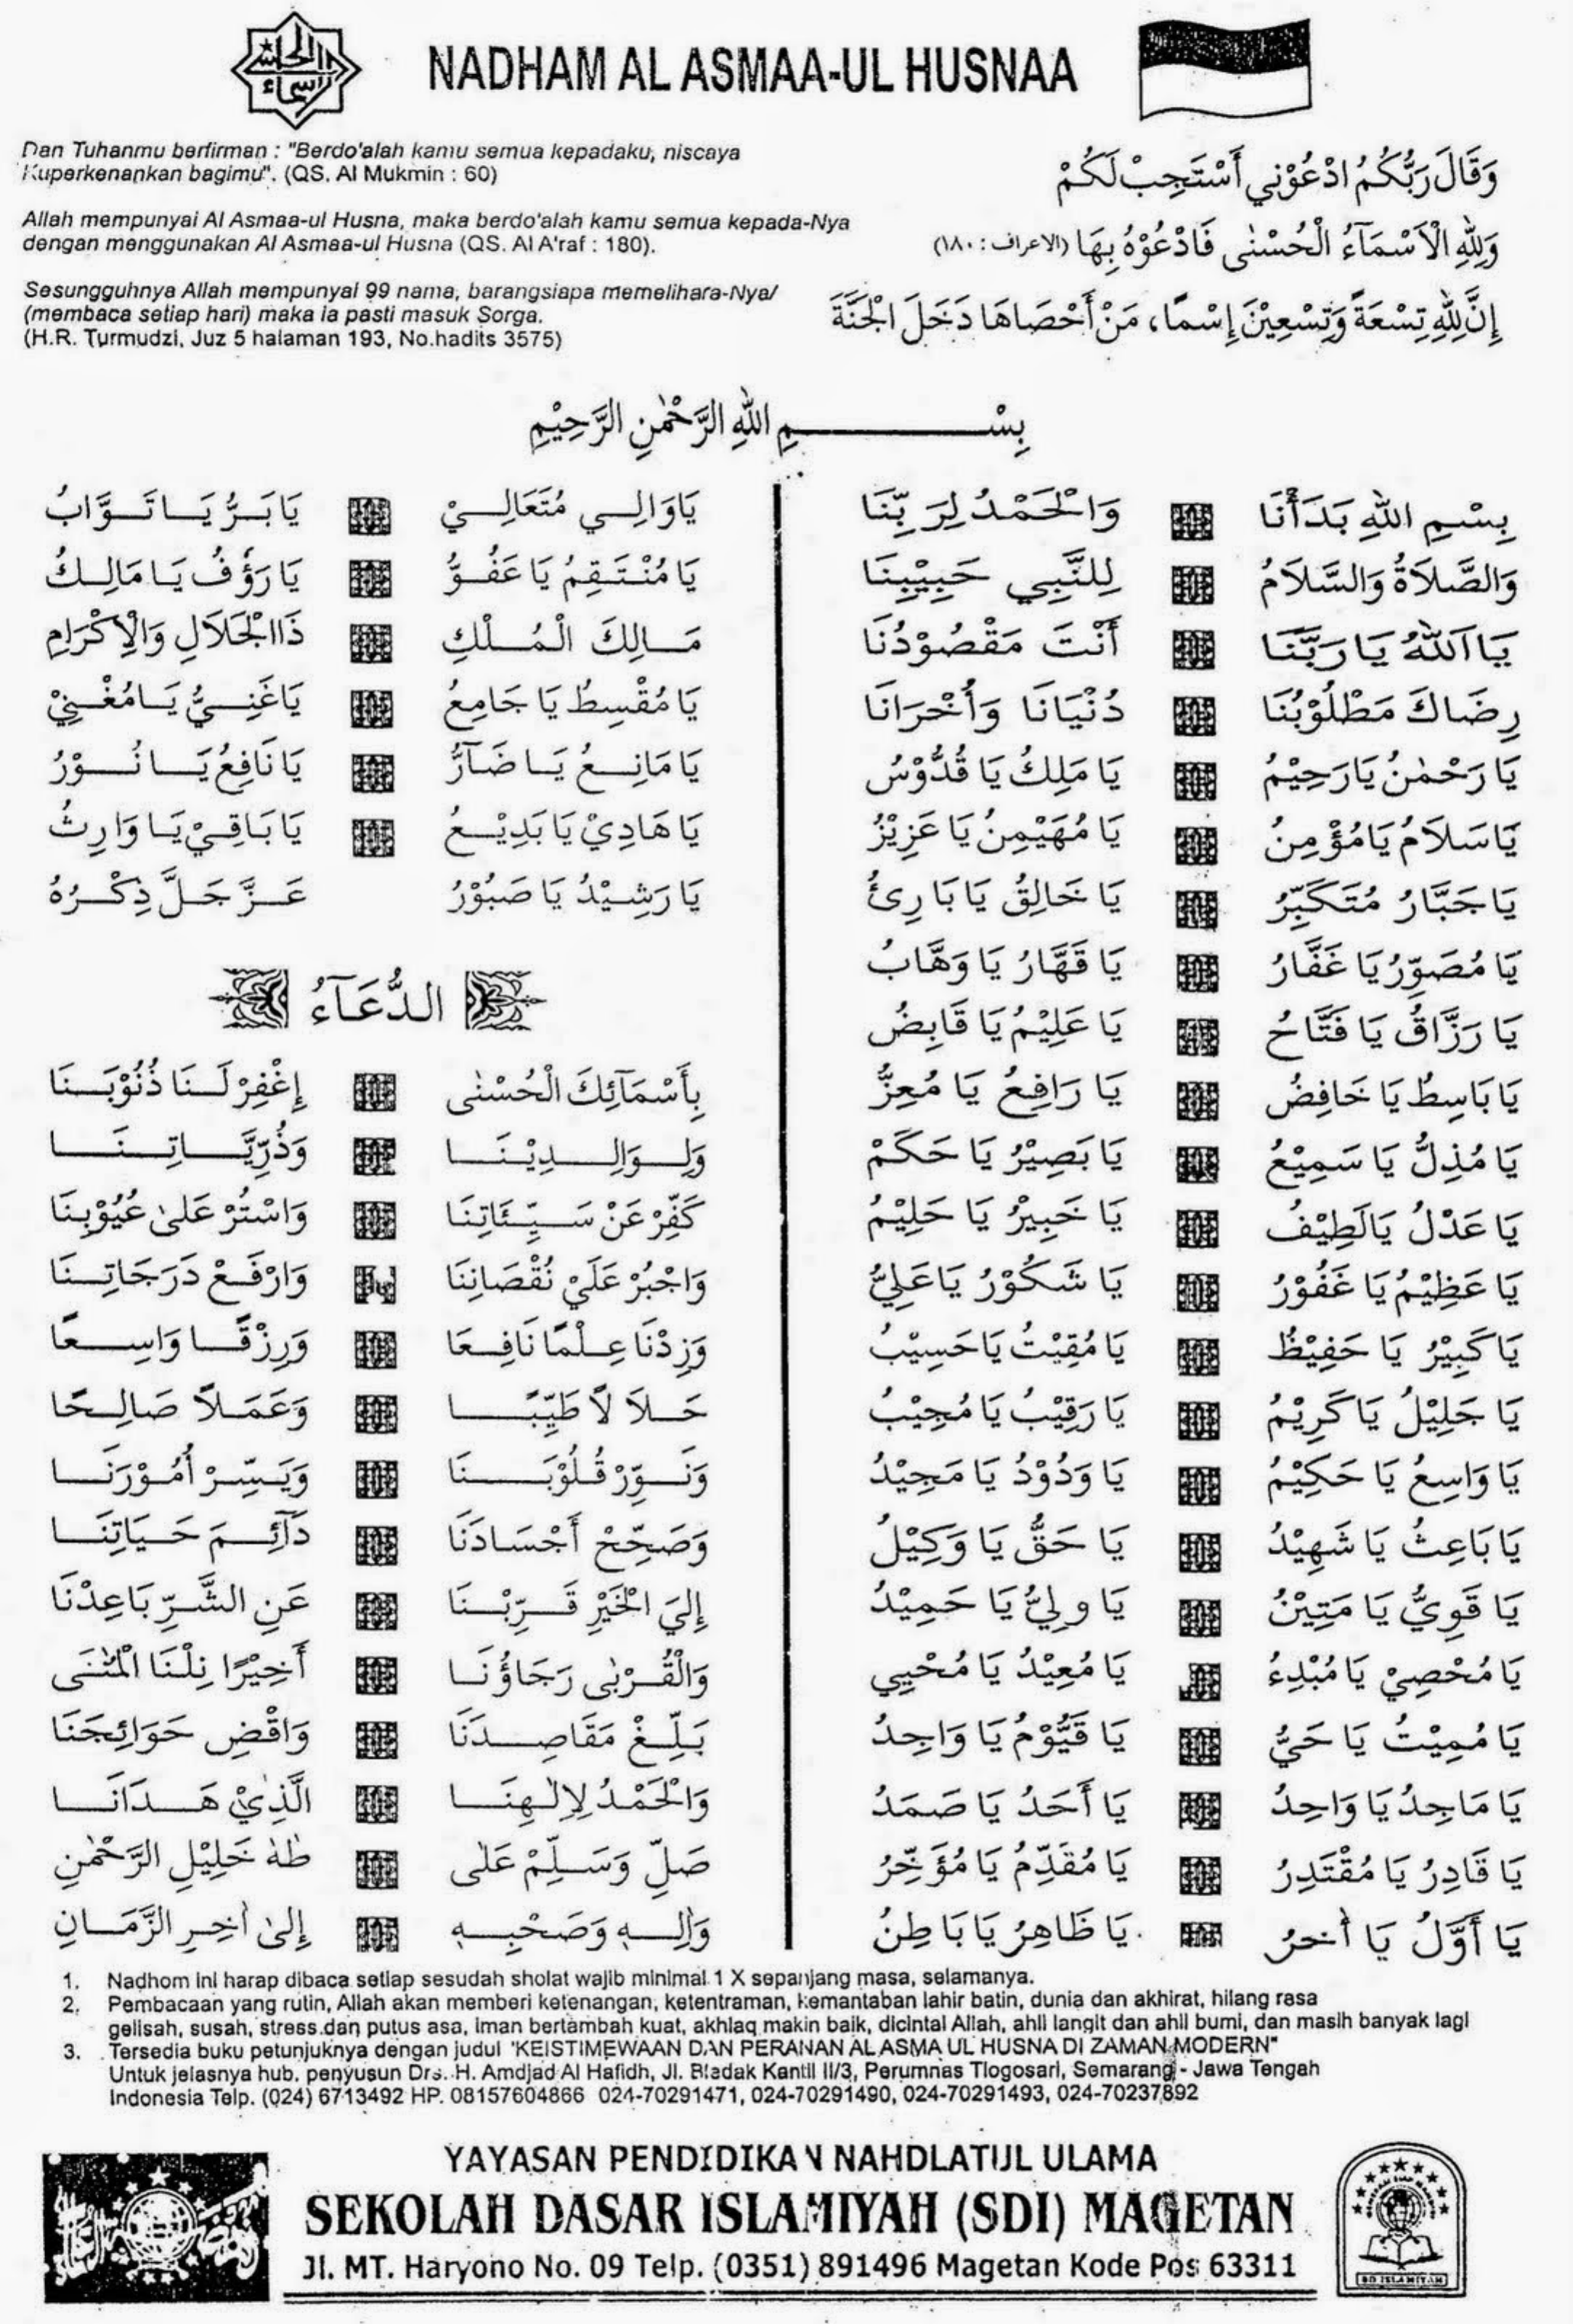 NADHAM AL ASMAA-UL HUSNAA
Dan Tuhanmu berfirman : "Berdo'alah kamu semua kepadaku, niscaya
Kuperkenankan bagimu". (QS. Al Mukmin : 60)
وَقَالَ رَبُّكُمُ ادْعُوْنِي أَسْتَجِبْ لَكُمْ
Allah mempunyai Al Asmaa-ul Husna, maka berdo'alah kamu semua kepada-Nya
dengan menggunakan Al Asmaa-ul Husna (QS. Al A'raf : 180).
وَلِلّٰهِ الْاَسْمَآءُ الْحُسْنٰى فَادْعُوْهُ بِهَا (الاعراف : ١٨٠)
Sesungguhnya Allah mempunyai 99 nama, barangsiapa memelihara-Nya/
(membaca setiap hari) maka ia pasti masuk Sorga.
(H.R. Turmudzi, Juz 5 halaman 193, No.hadits 3575)
إِنَّ لِلّٰهِ تِسْعَةً وَتِسْعِيْنَ إِسْمًا، مَنْ أَحْصَاهَا دَخَلَ الْجَنَّةَ
بِسْمِ اللهِ الرَّحْمٰنِ الرَّحِيْمِ
بِسْمِ اللهِ بَدَأْنَا وَالْحَمْدُ لِرَبِّنَا
وَالصَّلَاةُ وَالسَّلَامُ لِلنَّبِي حَبِيْبِنَا
يَا اَللّٰهُ يَا رَبَّنَا أَنْتَ مَقْصُوْدُنَا
رِضَاكَ مَطْلُوْبُنَا دُنْيَانَا وَأُخْرَانَا
يَا رَحْمٰنُ يَارَحِيْمُ يَا مَلِكُ يَا قُدُّوْسُ
يَاسَلَامُ يَامُؤْمِنُ يَا مُهَيْمِنُ يَا عَزِيْزُ
يَاجَبَّارُ مُتَكَبِّرُ يَا خَالِقُ يَا بَارِئُ
يَا مُصَوِّرُ يَا غَفَّارُ يَا قَهَّارُ يَا وَهَّابُ
يَا رَزَّاقُ يَا فَتَّاحُ يَا عَلِيْمُ يَا قَابِضُ
يَا بَاسِطُ يَا خَافِضُ يَا رَافِعُ يَا مُعِزُّ
يَا مُذِلُّ يَا سَمِيْعُ يَا بَصِيْرُ يَا حَكَمُ
يَا عَدْلُ يَالَطِيْفُ يَا خَبِيْرُ يَا حَلِيْمُ
يَا عَظِيْمُ يَا غَفُوْرُ يَا شَكُوْرُ يَاعَلِيُّ
يَاكَبِيْرُ يَا حَفِيْظُ يَا مُقِيْتُ يَاحَسِيْبُ
يَا جَلِيْلُ يَاكَرِيْمُ يَا رَقِيْبُ يَا مُجِيْبُ
يَا وَاسِعُ يَا حَكِيْمُ يَا وَدُوْدُ يَا مَجِيْدُ
يَا بَاعِثُ يَا شَهِيْدُ يَا حَقُّ يَا وَكِيْلُ
يَا قَوِيُّ يَا مَتِيْنُ يَا وَلِيُّ يَا حَمِيْدُ
يَا مُحْصِيْ يَا مُبْدِءُ يَا مُعِيْدُ يَا مُحْيِي
يَا مُمِيْتُ يَا حَيُّ يَا قَيُّوْمُ يَا وَاجِدُ
يَا مَاجِدُ يَا وَاحِدُ يَا أَحَدُ يَا صَمَدُ
يَا قَادِرُ يَا مُقْتَدِرُ يَا مُقَدِّمُ يَا مُؤَخِّرُ
يَا أَوَّلُ يَا أٰخِرُ يَا ظَاهِرُ يَا بَاطِنُ
يَاوَالِي مُتَعَالِيْ يَا بَرُّ يَا تَوَّابُ
يَا مُنْتَقِمُ يَا عَفُوُّ يَا رَؤُفُ يَا مَالِكُ
مَالِكَ الْمُلْكِ ذَاالْجَلَالِ وَالْإِكْرَامِ
يَا مُقْسِطُ يَا جَامِعُ يَاغَنِيُّ يَامُغْنِيْ
يَا مَانِعُ يَا ضَآرُّ يَا نَافِعُ يَا نُوْرُ
يَا هَادِيْ يَا بَدِيْعُ يَا بَاقِيْ يَا وَارِثُ
يَا رَشِيْدُ يَا صَبُوْرُ عَزَّ جَلَّ ذِكْرُهُ
الدُّعَآءُ
بِأَسْمَآئِكَ الْحُسْنٰى إِغْفِرْ لَنَا ذُنُوْبَنَا
وَلِوَالِدِيْنَا وَذُرِّيَّاتِنَا
كَفِّرْ عَنْ سَيِّئَاتِنَا وَاسْتُرْ عَلىٰ عُيُوْبِنَا
وَاجْبُرْ عَلَيْ نُقْصَانِنَا وَارْفَعْ دَرَجَاتِنَا
وَزِدْنَا عِلْمًا نَافِعَا وَرِزْقًا وَاسِعًا
حَلَا لًا طَيِّبًا وَعَمَلًا صَالِحًا
وَنَوِّرْ قُلُوْبَنَا وَيَسِّرْ أُمُوْرَنَا
وَصَحِّحْ أَجْسَادَنَا دَآئِمَ حَيَاتِنَا
إِلَيَ الْخَيْرِ قَرِّبْنَا عَنِ الشَّرِّ بَاعِدْنَا
وَالْقُرْبٰى رَجَاؤُنَا أَخِيْرًا نِلْنَا الْمُنٰى
بَلِّغْ مَقَاصِدَنَا وَاقْضِ حَوَائِجَنَا
وَالْحَمْدُ لِإِلٰهِنَا الَّذِيْ هَدَانَا
صَلِّ وَسَلِّمْ عَلٰى طٰهٰ خَلِيْلِ الرَّحْمٰنِ
وَاٰلِهٖ وَصَحْبِهٖ إِلىٰ أٰخِرِ الزَّمَانِ
1. Nadhom ini harap dibaca setiap sesudah sholat wajib minimal 1 X sepanjang masa, selamanya.
2. Pembacaan yang rutin, Allah akan memberi ketenangan, ketentraman, kemantaban lahir batin, dunia dan akhirat, hilang rasa
gelisah, susah, stress dan putus asa, iman bertambah kuat, akhlaq makin baik, dicintai Allah, ahli langit dan ahli bumi, dan masih banyak lagi
3. Tersedia buku petunjuknya dengan judul "KEISTIMEWAAN DAN PERANAN AL ASMA UL HUSNA DI ZAMAN MODERN"
Untuk jelasnya hub. penyusun Drs. H. Amdjad Al Hafidh, Jl. Bledak Kantil II/3, Perumnas Tlogosari, Semarang - Jawa Tengah
Indonesia Telp. (024) 6713492 HP. 08157604866 024-70291471, 024-70291490, 024-70291493, 024-70237892
YAYASAN PENDIDIKAN NAHDLATUL ULAMA
SEKOLAH DASAR ISLAMIYAH (SDI) MAGETAN
Jl. MT. Haryono No. 09 Telp. (0351) 891496 Magetan Kode Pos 63311
SD ISLAMIYAH